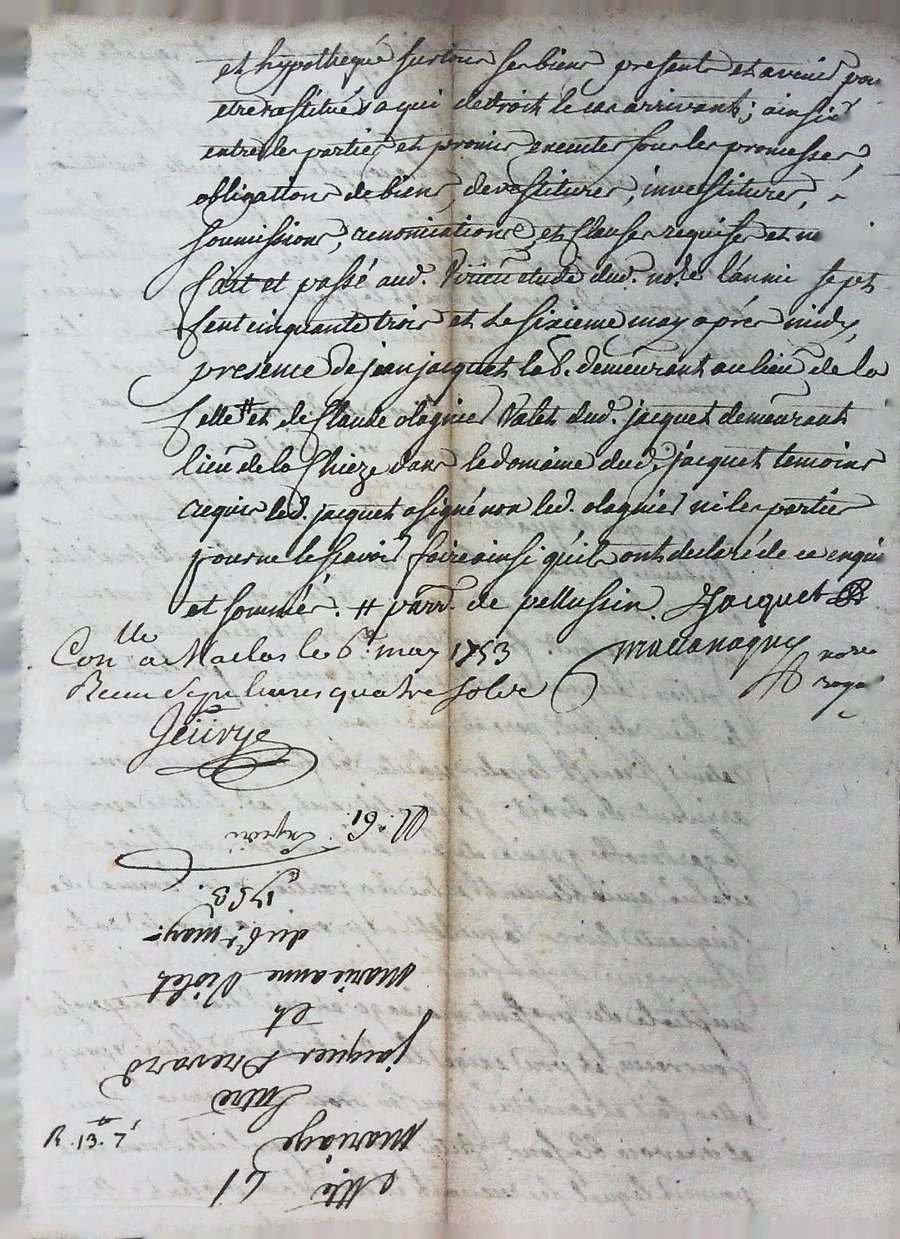 et hypothequé sur tous ses biens presents et avenir pour
etre restitués a qui de droit le cas arrivant; ainsi
entre les parties et promis executer sous les promesses,
obligations de biens, devestitures, investitures,
soumissions, renonciations, et clauses requises et
fait et passé aud. Virieu etude dud. no.re l'année sept
cent cinquante trois et le sixieme may après midy,
presence de jean jacquet lab. demeurant au lieu de la
Celle # et de Claude olagnier Valet dud. jacquet demeurant
lieu de la Chieze dans le domaine dud. jacquet temoins
requis led. jacquet a signé non led. olagnier ni les parties
pour ne le sçavoir faire ainsi qu'ils ont declaré de ce enquis
et sommés. # parr. de pellussin. J Jacquet
Con.lle a Maclas le 6.e may 1753
Receu sept livres quatre sols
nore
roya
N.o 61.
Expedié
1753.
du 6.e may
marie anne Violet
et
jacques
Entre
mariage
R. 13. 7
61